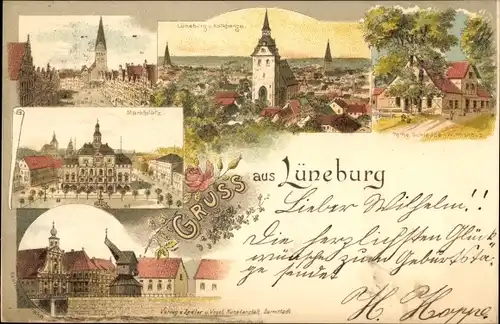 Lüneburg v. Kalkberge.
Marktplatz.
GRUSS aus Lüneburg
Lieber Wilhelm!!
Die herzlichsten Glück
wünsche zum Geburtsta-
ge sendet
H. Hoppe
Verlag v. Zedler u. Vogel, Kunstanstalt, Darmstadt.